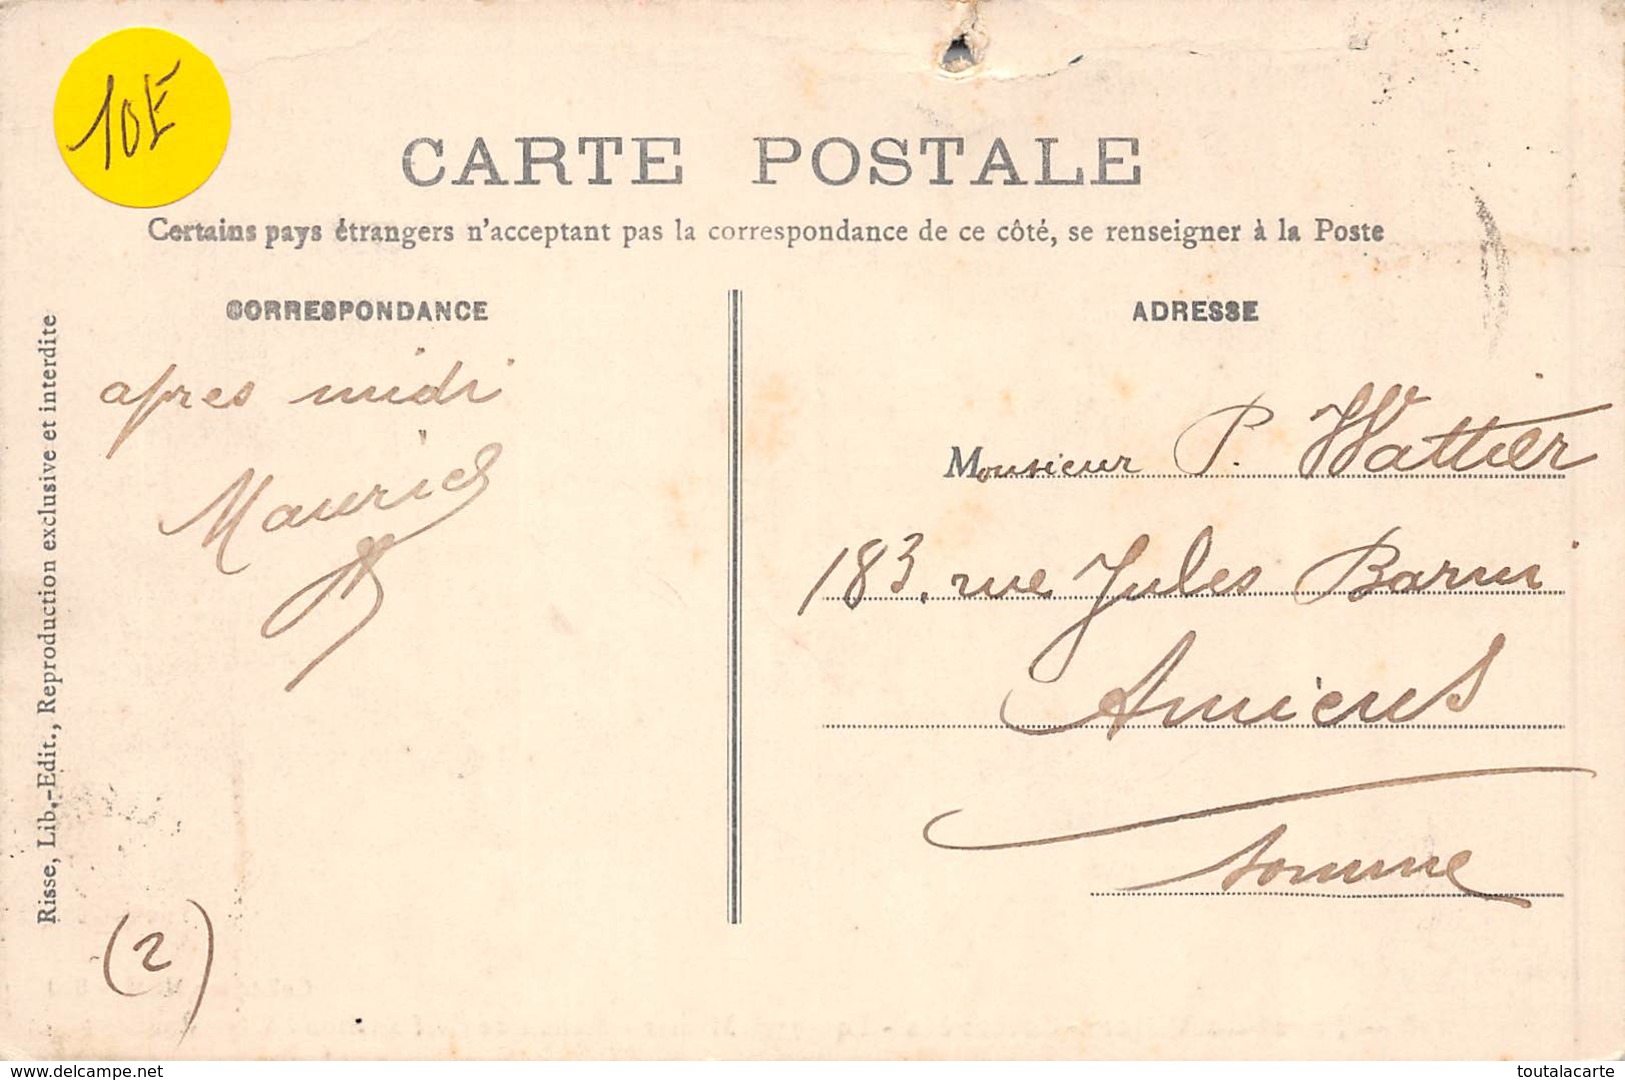 10E
CARTE POSTALE
Certains pays étrangers n'acceptant pas la correspondance de ce côté, se renseigner à la Poste
CORRESPONDANCE
ADRESSE
Risse, Lib.-Edit., Reproduction exclusive et interdite
apres midi
Maurice
(2)
Monsieur P. Wattier
183, rue Jules Barni
Amiens
Somme
www.delcampe.net
toutalacarte